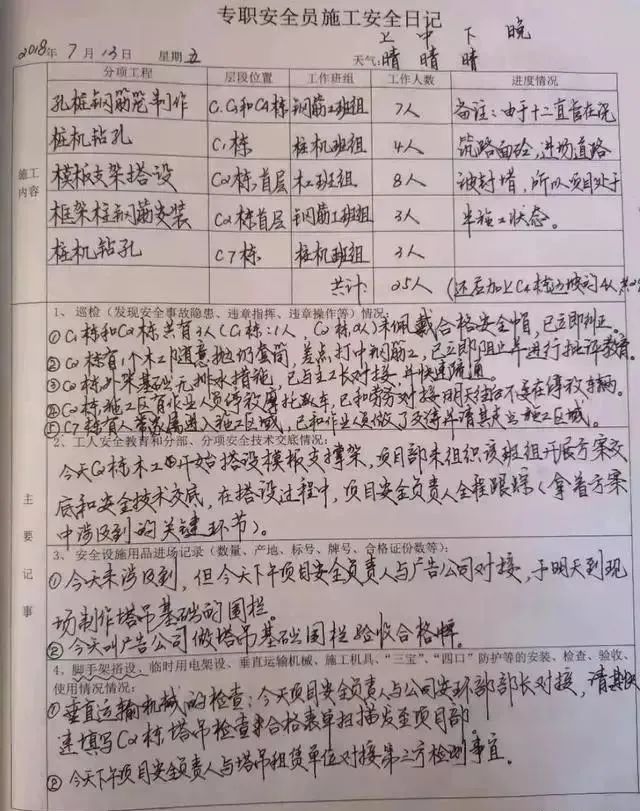 专职安全员施工安全日记
上 中 下 晚
2018年7月13日 星期五 天气:晴 晴 晴
分项工程 层段位置 工作班组 工作人数 进度情况
施工内容
孔桩钢筋笼制作 C1、C3和C4栋 钢筋工班组 7人 备注:由于十二直管在浇
桩机钻孔 C1栋 桩机班组 4人 筑路面砼,进场道路
模板支架搭设 C2栋首层 木工班组 8人 被封堵,所以项目处于
框架柱钢筋安装 C2栋首层 钢筋工班组 3人 半施工状态。
桩机钻孔 C7栋 桩机班组 3人
共计: 25人 (还应加上C4栋边坡的4人
主要记事
1、巡检(发现安全事故隐患、违章指挥、违章操作等)情况:
①C1栋和C2栋共有3人(C1栋:1人,C2栋2人)未佩戴合格安全帽,已立即纠正。
②C2栋有1个木工随意抛扔套筒,差点打中钢筋工,已立即阻止并进行批评教育。
③C2栋外架基础无排水措施,已与主工长对接,并快速疏通。
④C2栋施工区有作业人员停放摩托车,已和劳务对接明天给不要在停放车辆。
⑤C7栋有人带家属进入施工区域,已和作业人员做了交待并请其走出施工区域。
2、工人安全教育和分部、分项安全技术交底情况:
今天C2栋木工开始搭设模板支撑架,项目部未组织该班组开展方案交
底和安全技术交底,在搭设过程中,项目安全负责人全程跟踪(拿着方案
中涉及到的关键环节)。
3、安全设施用品进场记录(数量、产地、标号、牌号、合格证份数等):
①今天未涉及到,但今天下午项目安全负责人与广告公司对接,于明天到现
场制作塔吊基础的围栏。
②今天叫广告公司做塔吊基础围栏验收合格牌。
4、脚手架搭设、临时用电架设、垂直运输机械、施工机具、“三宝”、“四口”防护等的安装、检查、验收、
使用情况情况:
①垂直运输机械的检查:今天项目安全负责人与公司安环部部长对接,请其
速填写C2栋塔吊检查合格表单扫描发至项目部。
②今天下午项目安全负责人与塔吊租赁单位对接第三方检测事宜。